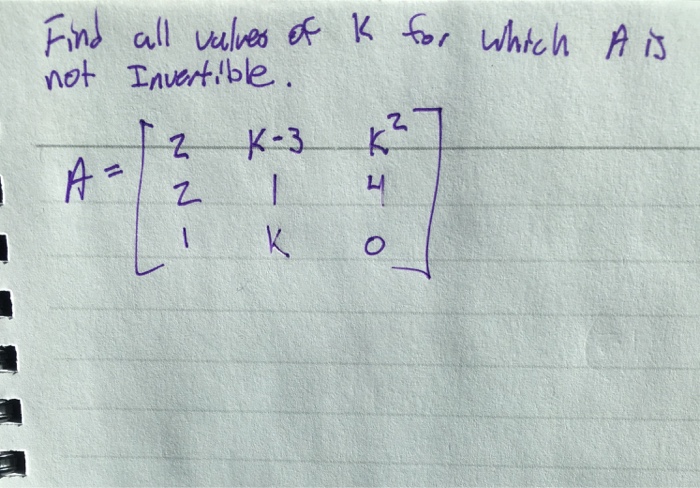 Find all values of K for which A is
not Invertible.
A = [ 2 K-3 K²
2 1 4
1 K 0 ]